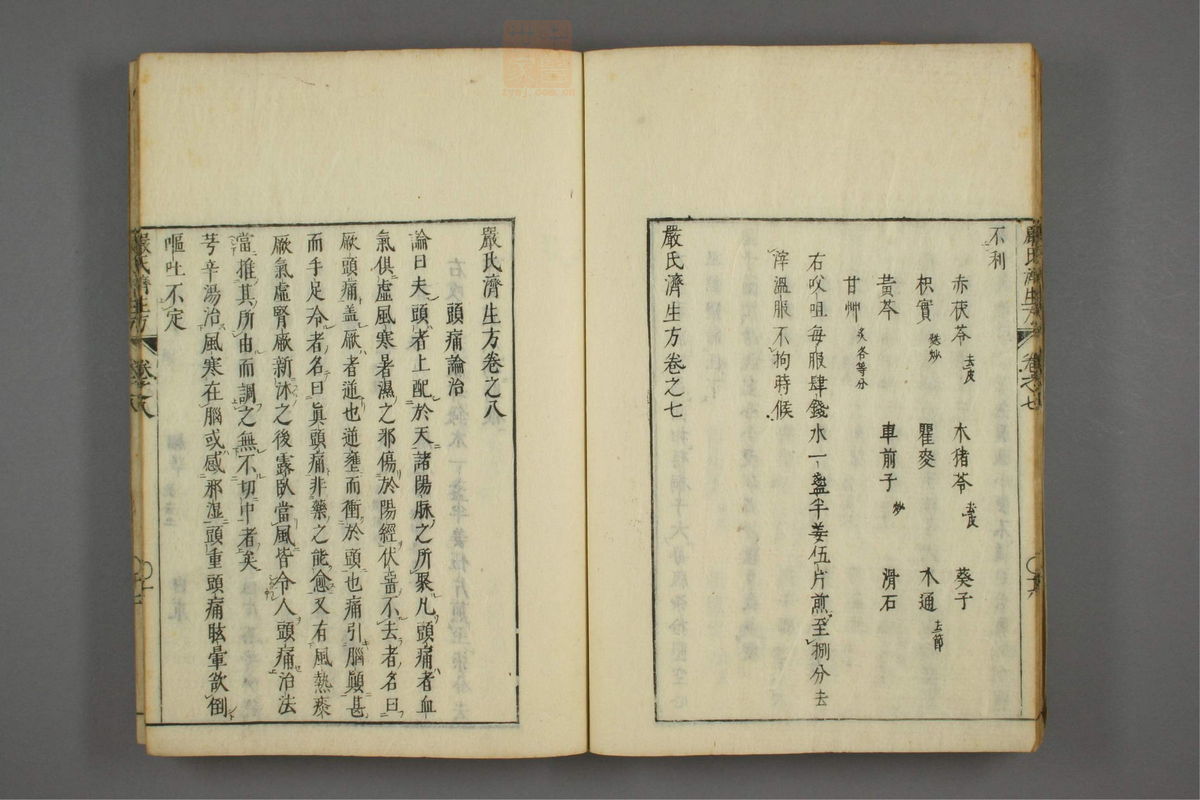 嚴氏濟生方 卷之七
不利
赤茯苓去皮 木猪苓去皮 葵子
枳實麸炒 瞿麥 木通去節
黃芩 車前子炒 滑石
甘艸炙各等分
右㕮咀每服肆錢水一盞半姜伍片煎至捌分去
滓溫服不拘時候
嚴氏濟生方卷之七
嚴氏濟生方卷之八
頭痛論治
論曰夫頭者上配於天諸陽脉之所聚凡頭痛者血
氣俱虛風寒暑濕之邪傷於陽經伏畱不去者名曰
厥頭痛盖厥者逆也逆壅而衝於頭也痛引腦顚甚
而手足冷者名曰眞頭痛非藥之能愈又有風熱痰
厥氣虛腎厥新沐之後露臥當風皆令人頭痛治法
當推其所由而調之無不切中者矣
芎辛湯治風寒在腦或感邪湿頭重頭痛眩暈欲倒
嘔吐不定
嚴氏濟生方 卷之八
zyyj.com.cn